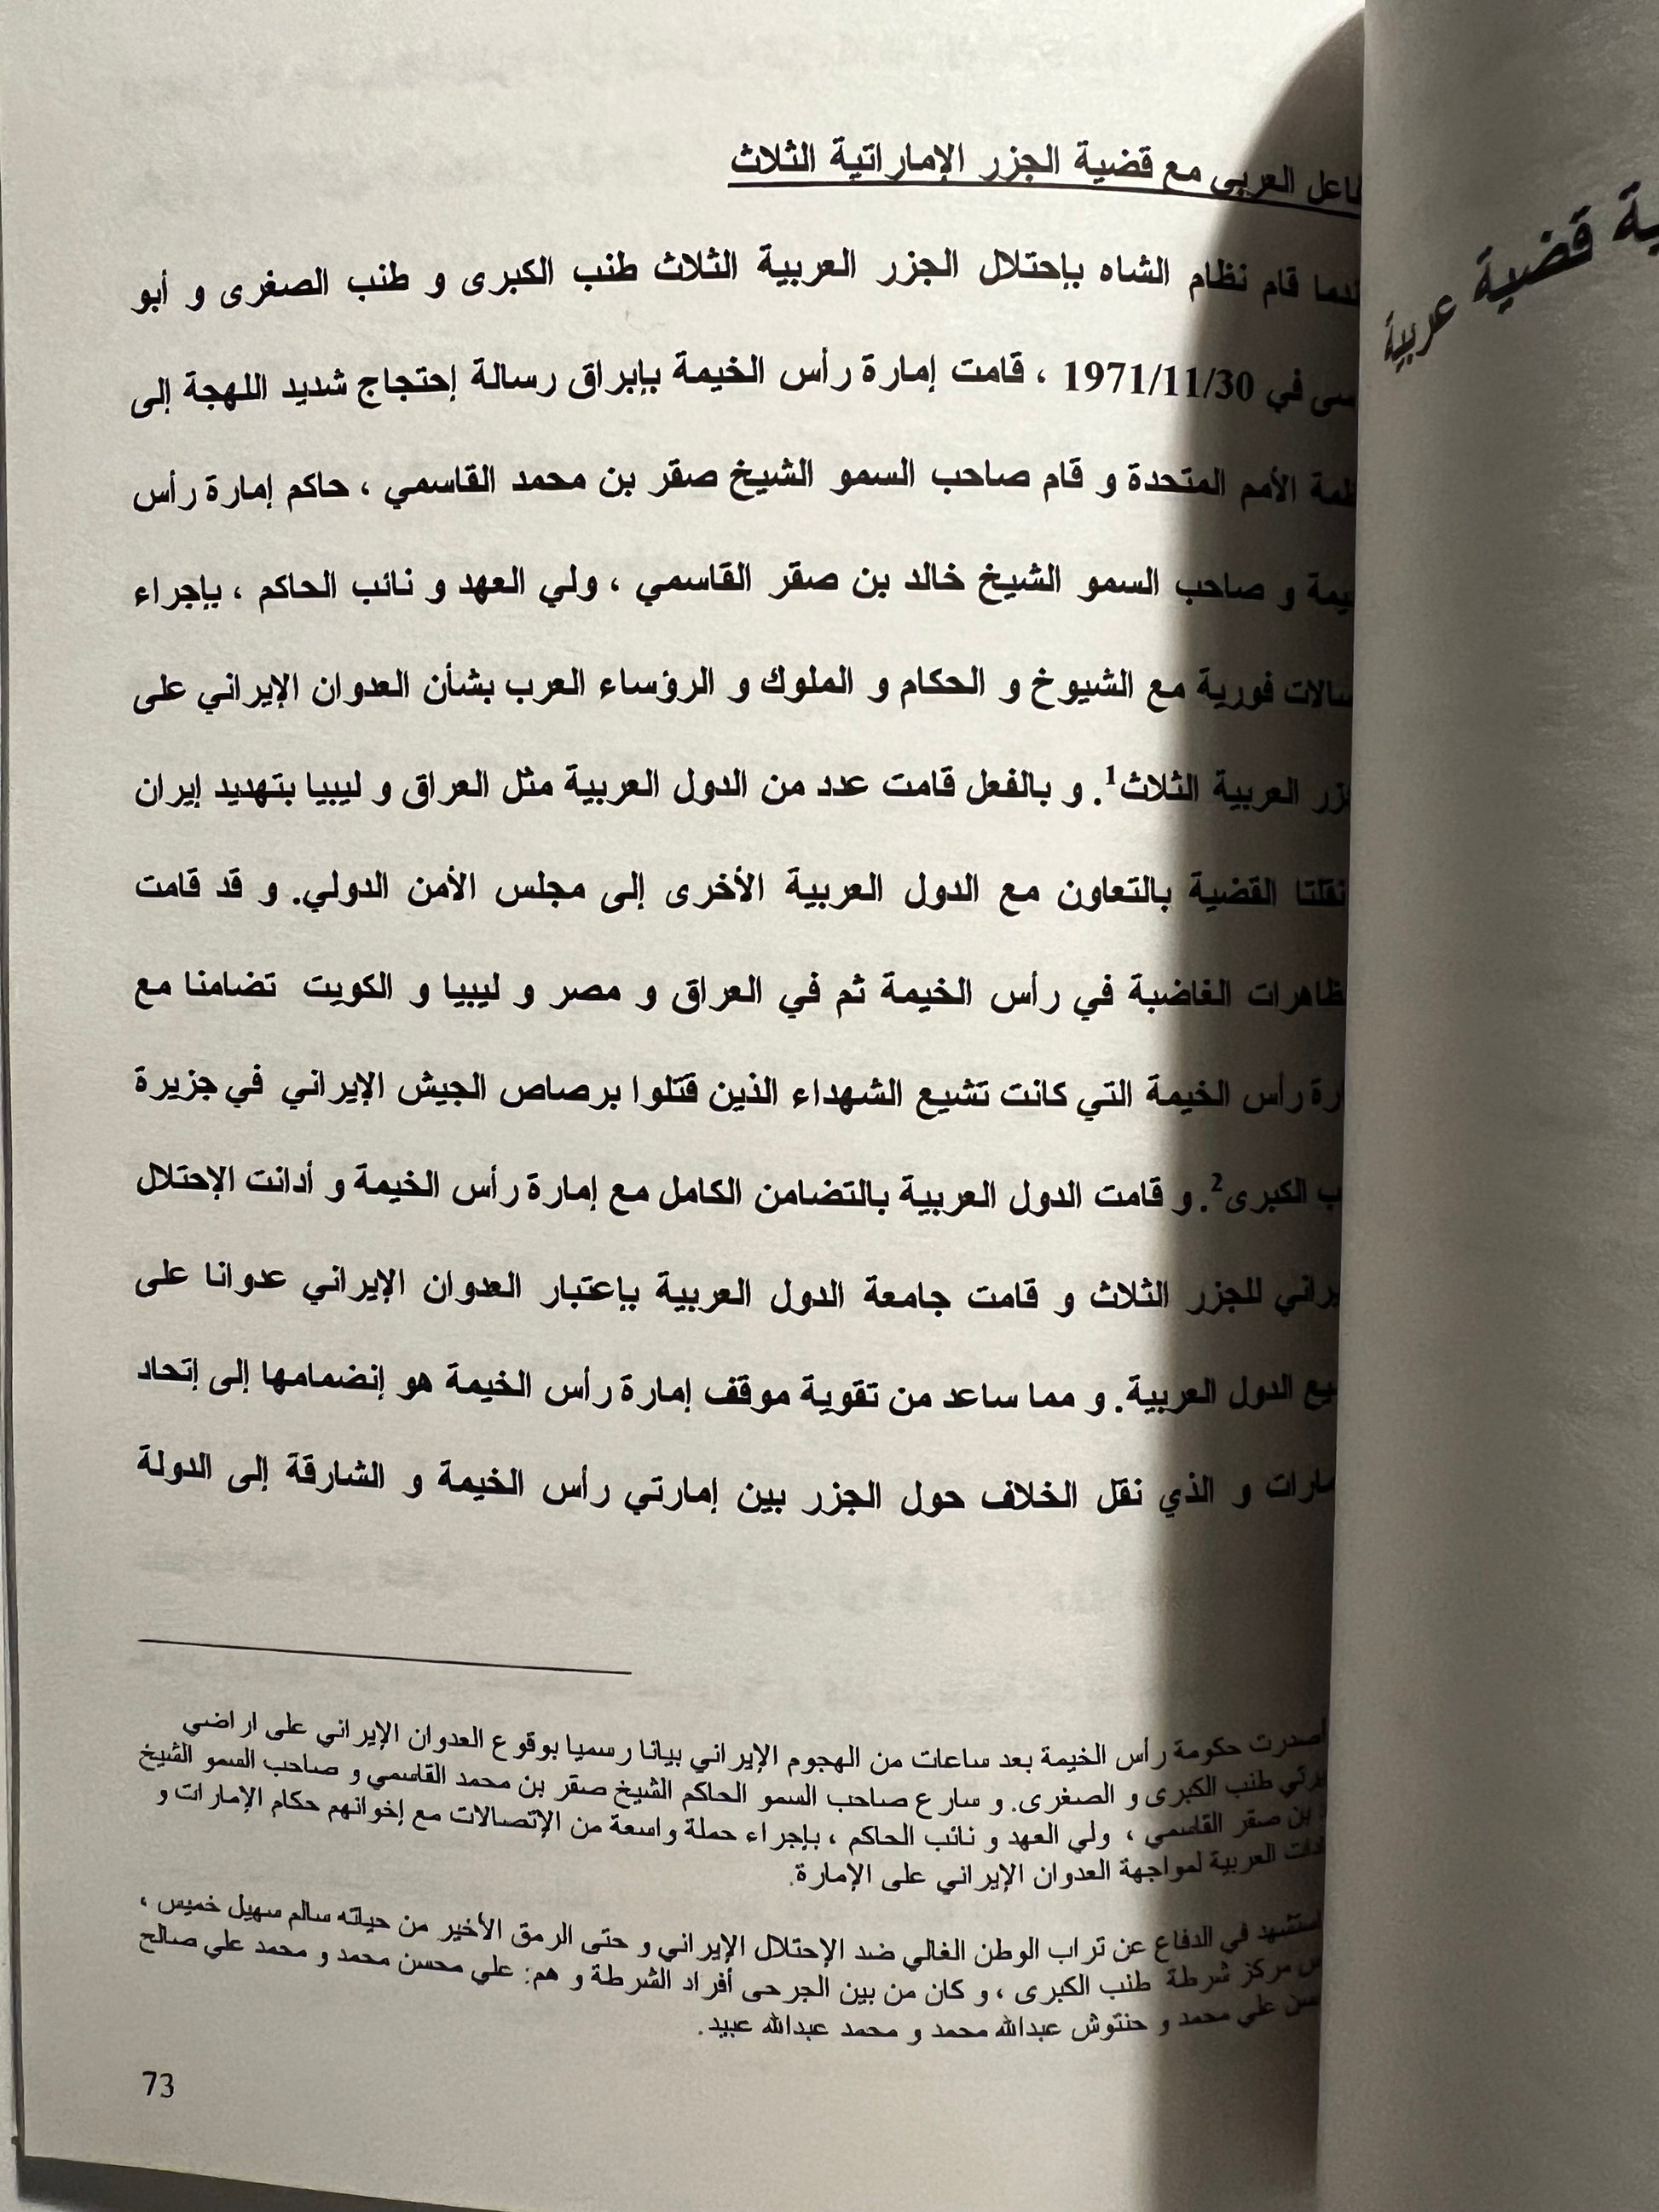 العربي مع قضية الجزر الإماراتية الثلاث
قام نظام الشاه بإحتلال الجزر العربية الثلاث طنب الكبرى و طنب الصغرى و أبو
في 1971/11/30 ، قامت إمارة رأس الخيمة بإبراق رسالة إحتجاج شديد اللهجة إلى
الأمم المتحدة و قام صاحب السمو الشيخ صقر بن محمد القاسمي ، حاكم إمارة رأس
و صاحب السمو الشيخ خالد بن صقر القاسمي ، ولي العهد و نائب الحاكم ، بإجراء
فورية مع الشيوخ و الحكام و الملوك و الرؤساء العرب بشأن العدوان الإيراني على
العربية الثلاث1. و بالفعل قامت عدد من الدول العربية مثل العراق و ليبيا بتهديد إيران
نقلتا القضية بالتعاون مع الدول العربية الأخرى إلى مجلس الأمن الدولي. و قد قامت
الغاضبة في رأس الخيمة ثم في العراق و مصر و ليبيا و الكويت تضامنا مع
رأس الخيمة التي كانت تشيع الشهداء الذين قتلوا برصاص الجيش الإيراني في جزيرة
الكبرى2. و قامت الدول العربية بالتضامن الكامل مع إمارة رأس الخيمة و أدانت الإحتلال
للجزر الثلاث و قامت جامعة الدول العربية بإعتبار العدوان الإيراني عدوانا على
الدول العربية. و مما ساعد من تقوية موقف إمارة رأس الخيمة هو إنضمامها إلى إتحاد
و الذي نقل الخلاف حول الجزر بين إمارتي رأس الخيمة و الشارقة إلى الدولة
أصدرت حكومة رأس الخيمة بعد ساعات من الهجوم الإيراني بيانا رسميا بوقوع العدوان الإيراني على اراضي
طنب الكبرى و الصغرى. و سارع صاحب السمو الحاكم الشيخ صقر بن محمد القاسمي و صاحب السمو الشيخ
بن صقر القاسمي ، ولي العهد و نائب الحاكم ، بإجراء حملة واسعة من الإتصالات مع إخوانهم حكام الإمارات و
العربية لمواجهة العدوان الإيراني على الإمارة.
في الدفاع عن تراب الوطن الغالي ضد الإحتلال الإيراني و حتى الرمق الأخير من حياته سالم سهيل خميس ،
مركز شرطة طنب الكبرى ، و كان من بين الجرحى أفراد الشرطة و هم: علي محسن محمد و محمد علي صالح
علي محمد و حنتوش عبدالله محمد و محمد عبدالله عبيد.
73
قضية عربية